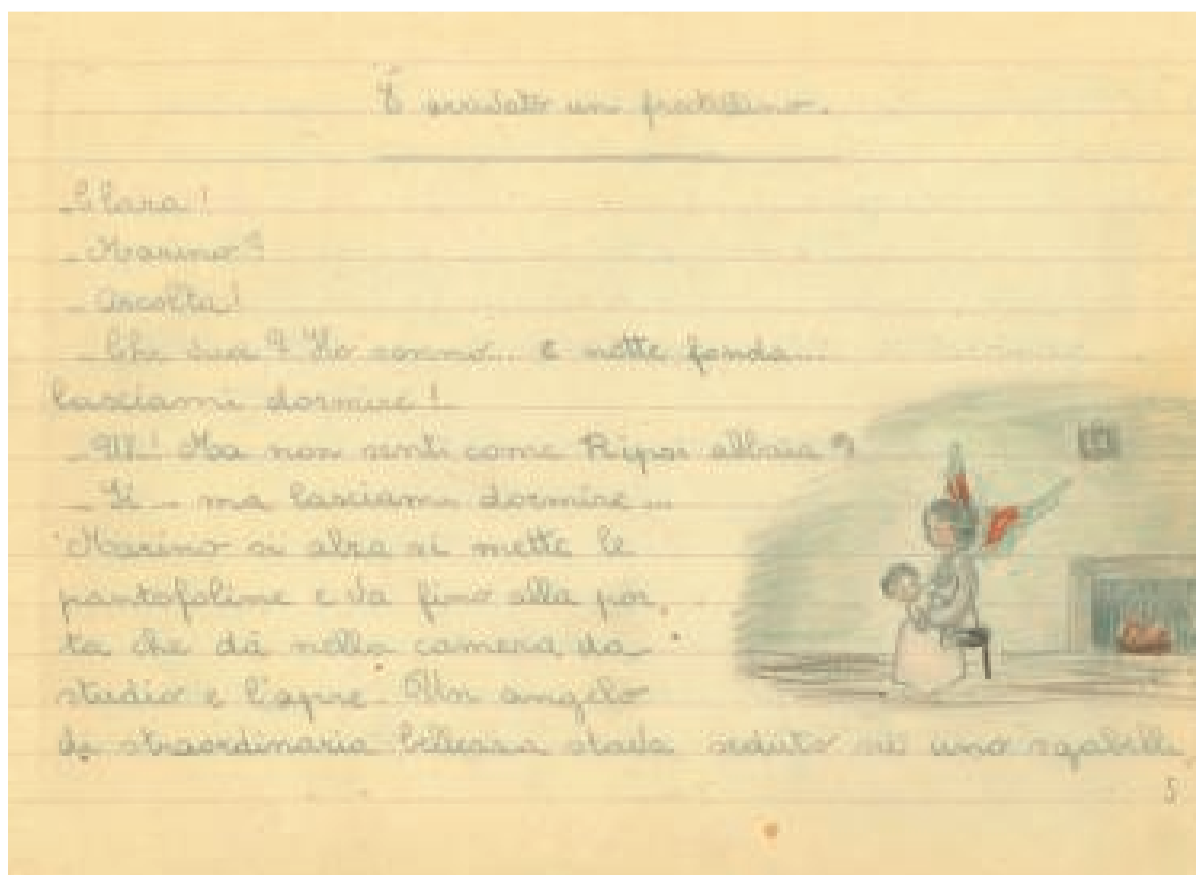 È arrivato un fratellino.
- Clara!
- Marino?
- Ascolta!
- Che vuoi? Ho sonno... è notte fonda...
lasciami dormire!
- Ma non senti come abbaia?
- Si - ma lasciami dormire...
Marino si alza si mette le
pantofoline e va fino alla por
ta che dà nella camera da
studio e l'apre. Un angelo
di straordinaria bellezza stava seduto su uno sgabello,